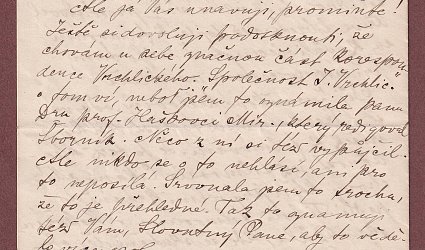 Ale já Vás unavuji, promiňte!
Ještě si dovoluji podotknouti, že
chovám u sebe značnou část korespon
dence Vrchlického. Společnost J. Vrchlic.
o tom ví, neboť jsem to oznámila panu
Dru prof. Haškovci Mir., který redigoval
Sborník. Něco z ní si též vypůjčil.
Ale nikdo se o to nehlásí, ani pro
to neposílá. Srovnala jsem to trochu,
že to je přehledné. Tak to oznamuji
též Vám, Slovutný Pane, aby to věde-